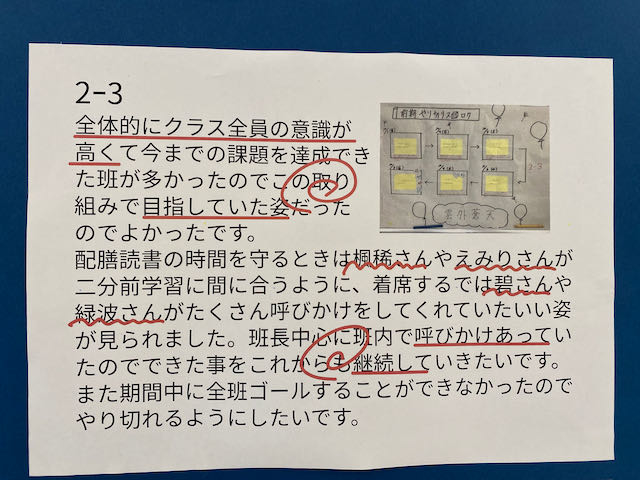 2-3
全体的にクラス全員の意識が
高くて今までの課題を達成でき
た班が多かったのでこの取り
組みで目指していた姿だった
のでよかったです。
配膳読書の時間を守るときは楓稀さんやえみりさんが
二分前学習に間に合うように、着席するでは碧さんや
緑波さんがたくさん呼びかけをしてくれていたいい姿
が見られました。班長中心に班内で呼びかけあってい
たのでできた事をこれからも継続していきたいです。
また期間中に全班ゴールすることができなかったので
やり切れるようにしたいです。
2-3
雲外蒼天